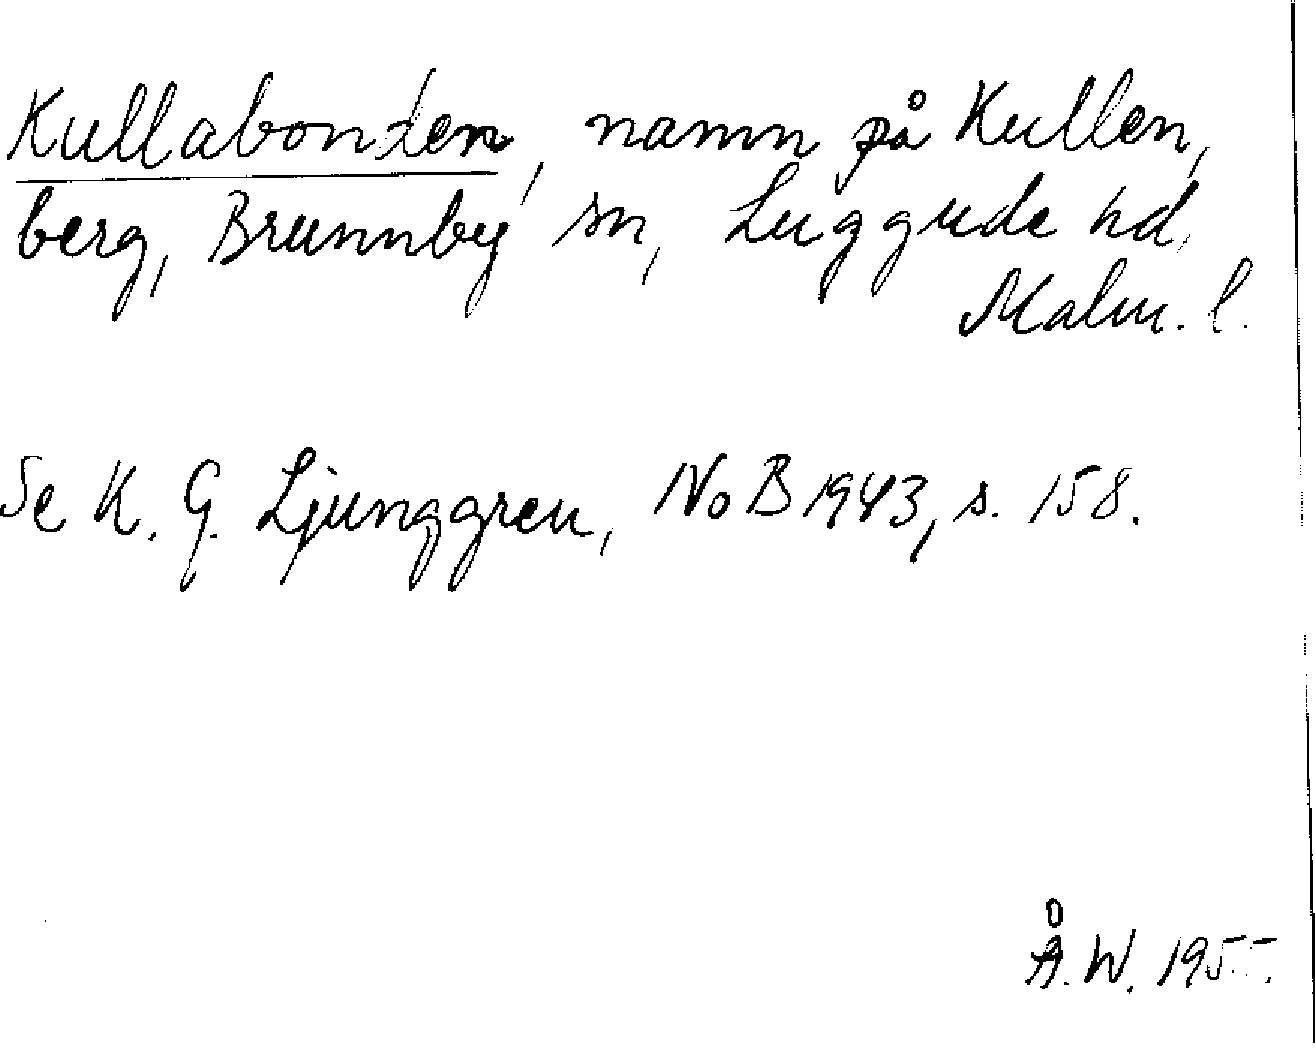 Kullabonden, namn på Kullen,
berg, Brunnby sn, Luggude hd,
Malm. l.
Se K. G. Ljunggren, NoB 1943, s. 158.
Å. W. 1955.